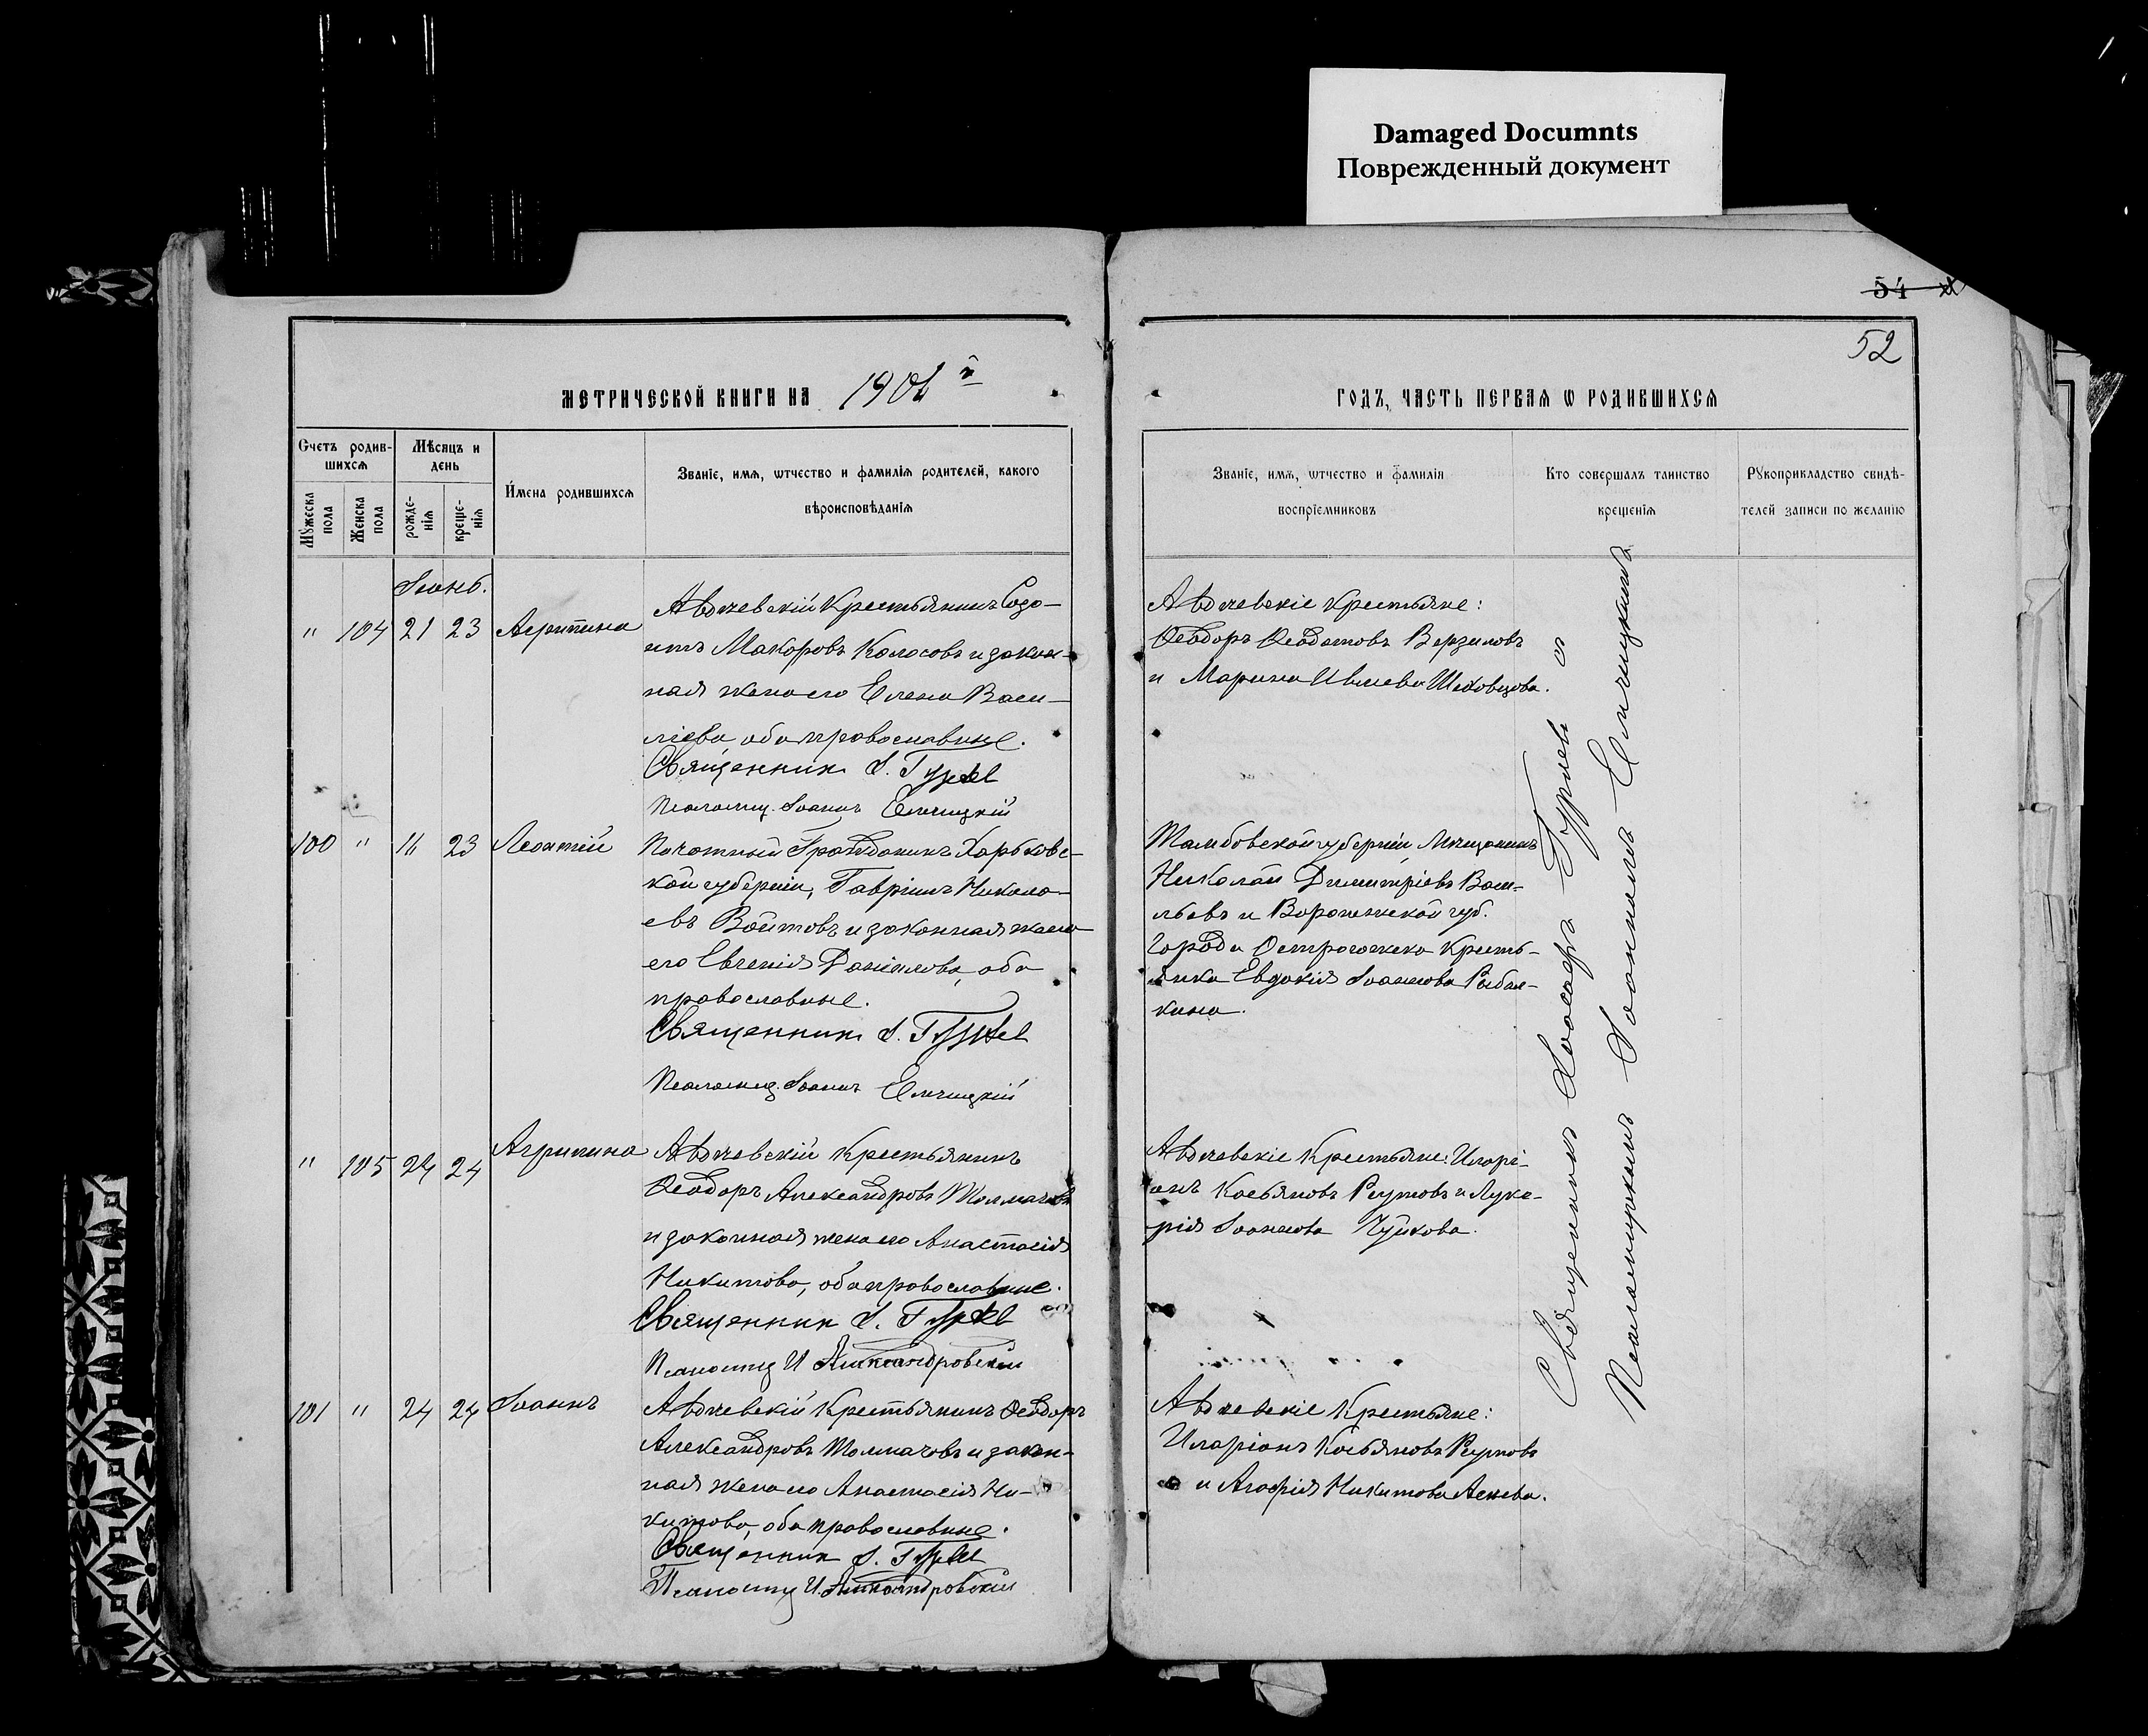 Damaged Documnts
Поврежденный документ
54
52
МЕТРИЧЕСКОЙ КНИГИ НА
ГОДЪ, ЧАСТЬ ПЕРВАЯ Ѡ РОДИВШИХСЯ
Счетъ родив-
шихся
Мужеска пола
Женска пола
Мѣсяцъ и
день
рожде-
нія
креще-
нія
Имена родившихся
Званіе, имя, ѡтчество и фамилія родителей, какого
вѣроисповѣданія
Званіе, имя, ѡтчество и фамилія
воспріемниковъ
Кто совершалъ таинство
крещенія
Рукоприкладство свидѣ-
телей записи по желанію
" 104 21 23
Крестьянинъ
Макоровъ Колосовъ и закон-
ная жена его Елена Васи-
ліева оба православные.
Священникъ І. Гурьев
Псаломщ. Іоаннъ
крестьяне:
Ѳеодоръ Ѳеодотовъ Верзиловъ
и Марина Шаховцова.
100 " 11 23 Леонтій
Почотный Гражданинъ Харьковс-
кой губерніи, Гавріилъ Никола-
евъ Войтовъ и законная жена
его Евгенія Даніилова, оба
православные.
Священникъ І. Гурьев
Псаломщ. Іоаннъ
Тамбовской губерніи Мещанинъ
Николай Димитріевъ Васи-
льевъ и Воронежской губ.
Города Острогожска Кресть-
янка Евдокія Іоаннова Рыбал-
кина.
" 105 24 24 Агрипина
Крестьянинъ
Ѳеодоръ Александровъ Толмачовъ
и законная жена его Анастасія
Никитова, оба православные.
Священникъ І. Гурьев
Псаломщ И Александровскій
Крестьяне: Иларі-
онъ Касьяновъ Реутовъ и Луке-
рія Іоаннова Чуйкова.
101 " 24 24 Іоаннъ
Крестьянинъ Ѳеодоръ
Александровъ Толмачовъ и закон-
ная жена его Анастасія Ни-
китова, оба православные.
Священникъ І. Гурьев
Псаломщ И Александровскій
Крестьяне:
Иларіонъ Касьяновъ Реутовъ
и Агафія Никитова
Священникъ Іоасафъ Гурьевъ съ
Псаломщикомъ Іоанномъ